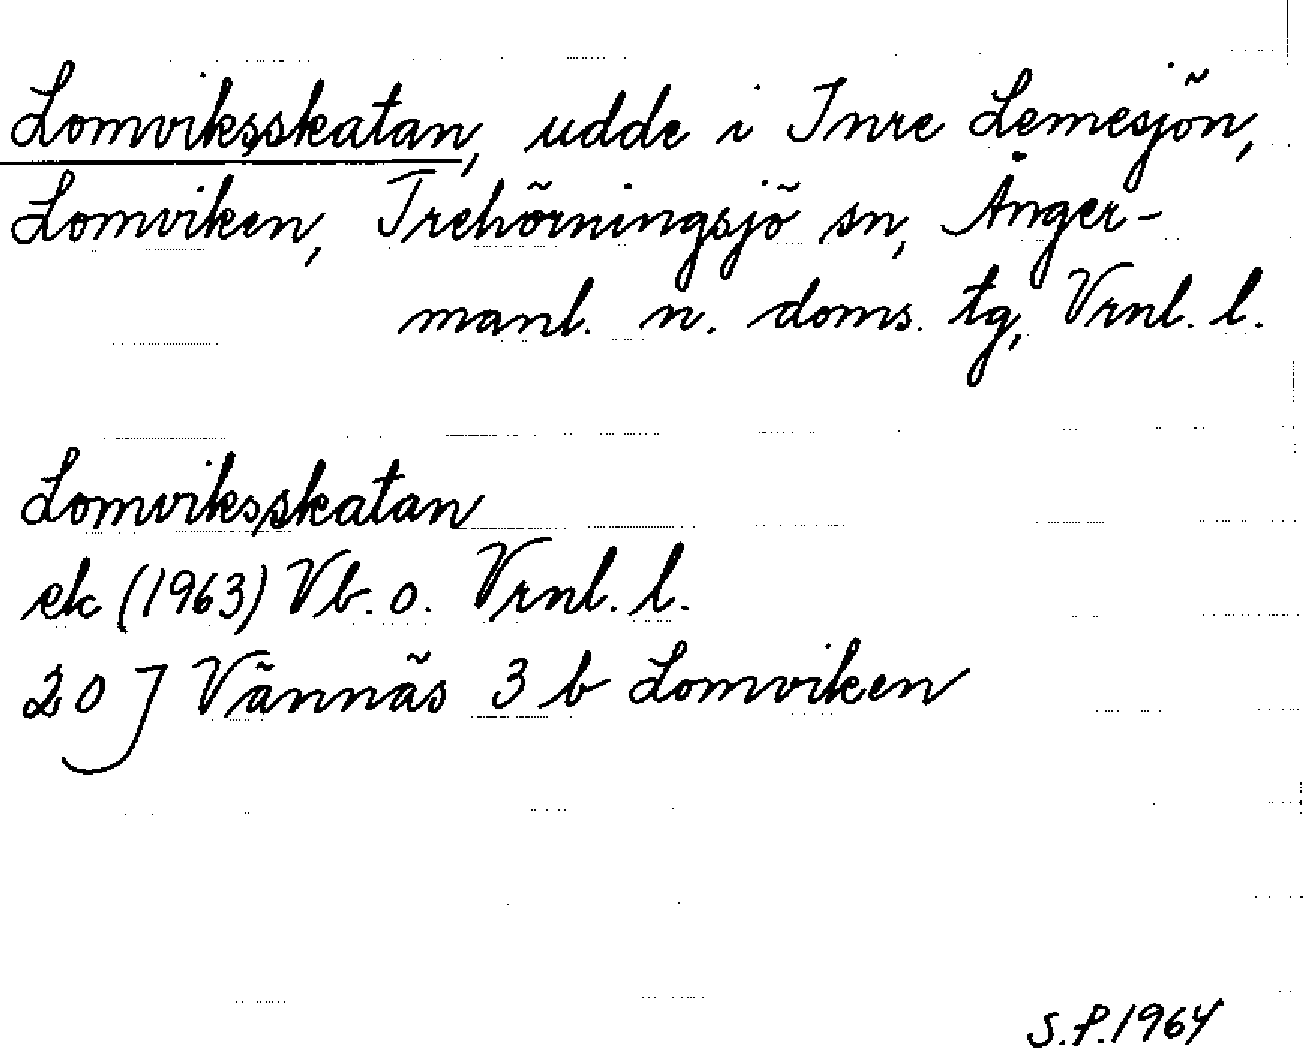 Lomviksskatan, udde i Inre Lemesjön,
Lomviken, Trehörningsjö sn, Ånger-
manl. n. doms. tg, Vrnl. l.
Lomviksskatan
ek (1963) Vb. o. Vrnl. l.
20 J Vännäs 3 b Lomviken
S.P.1964